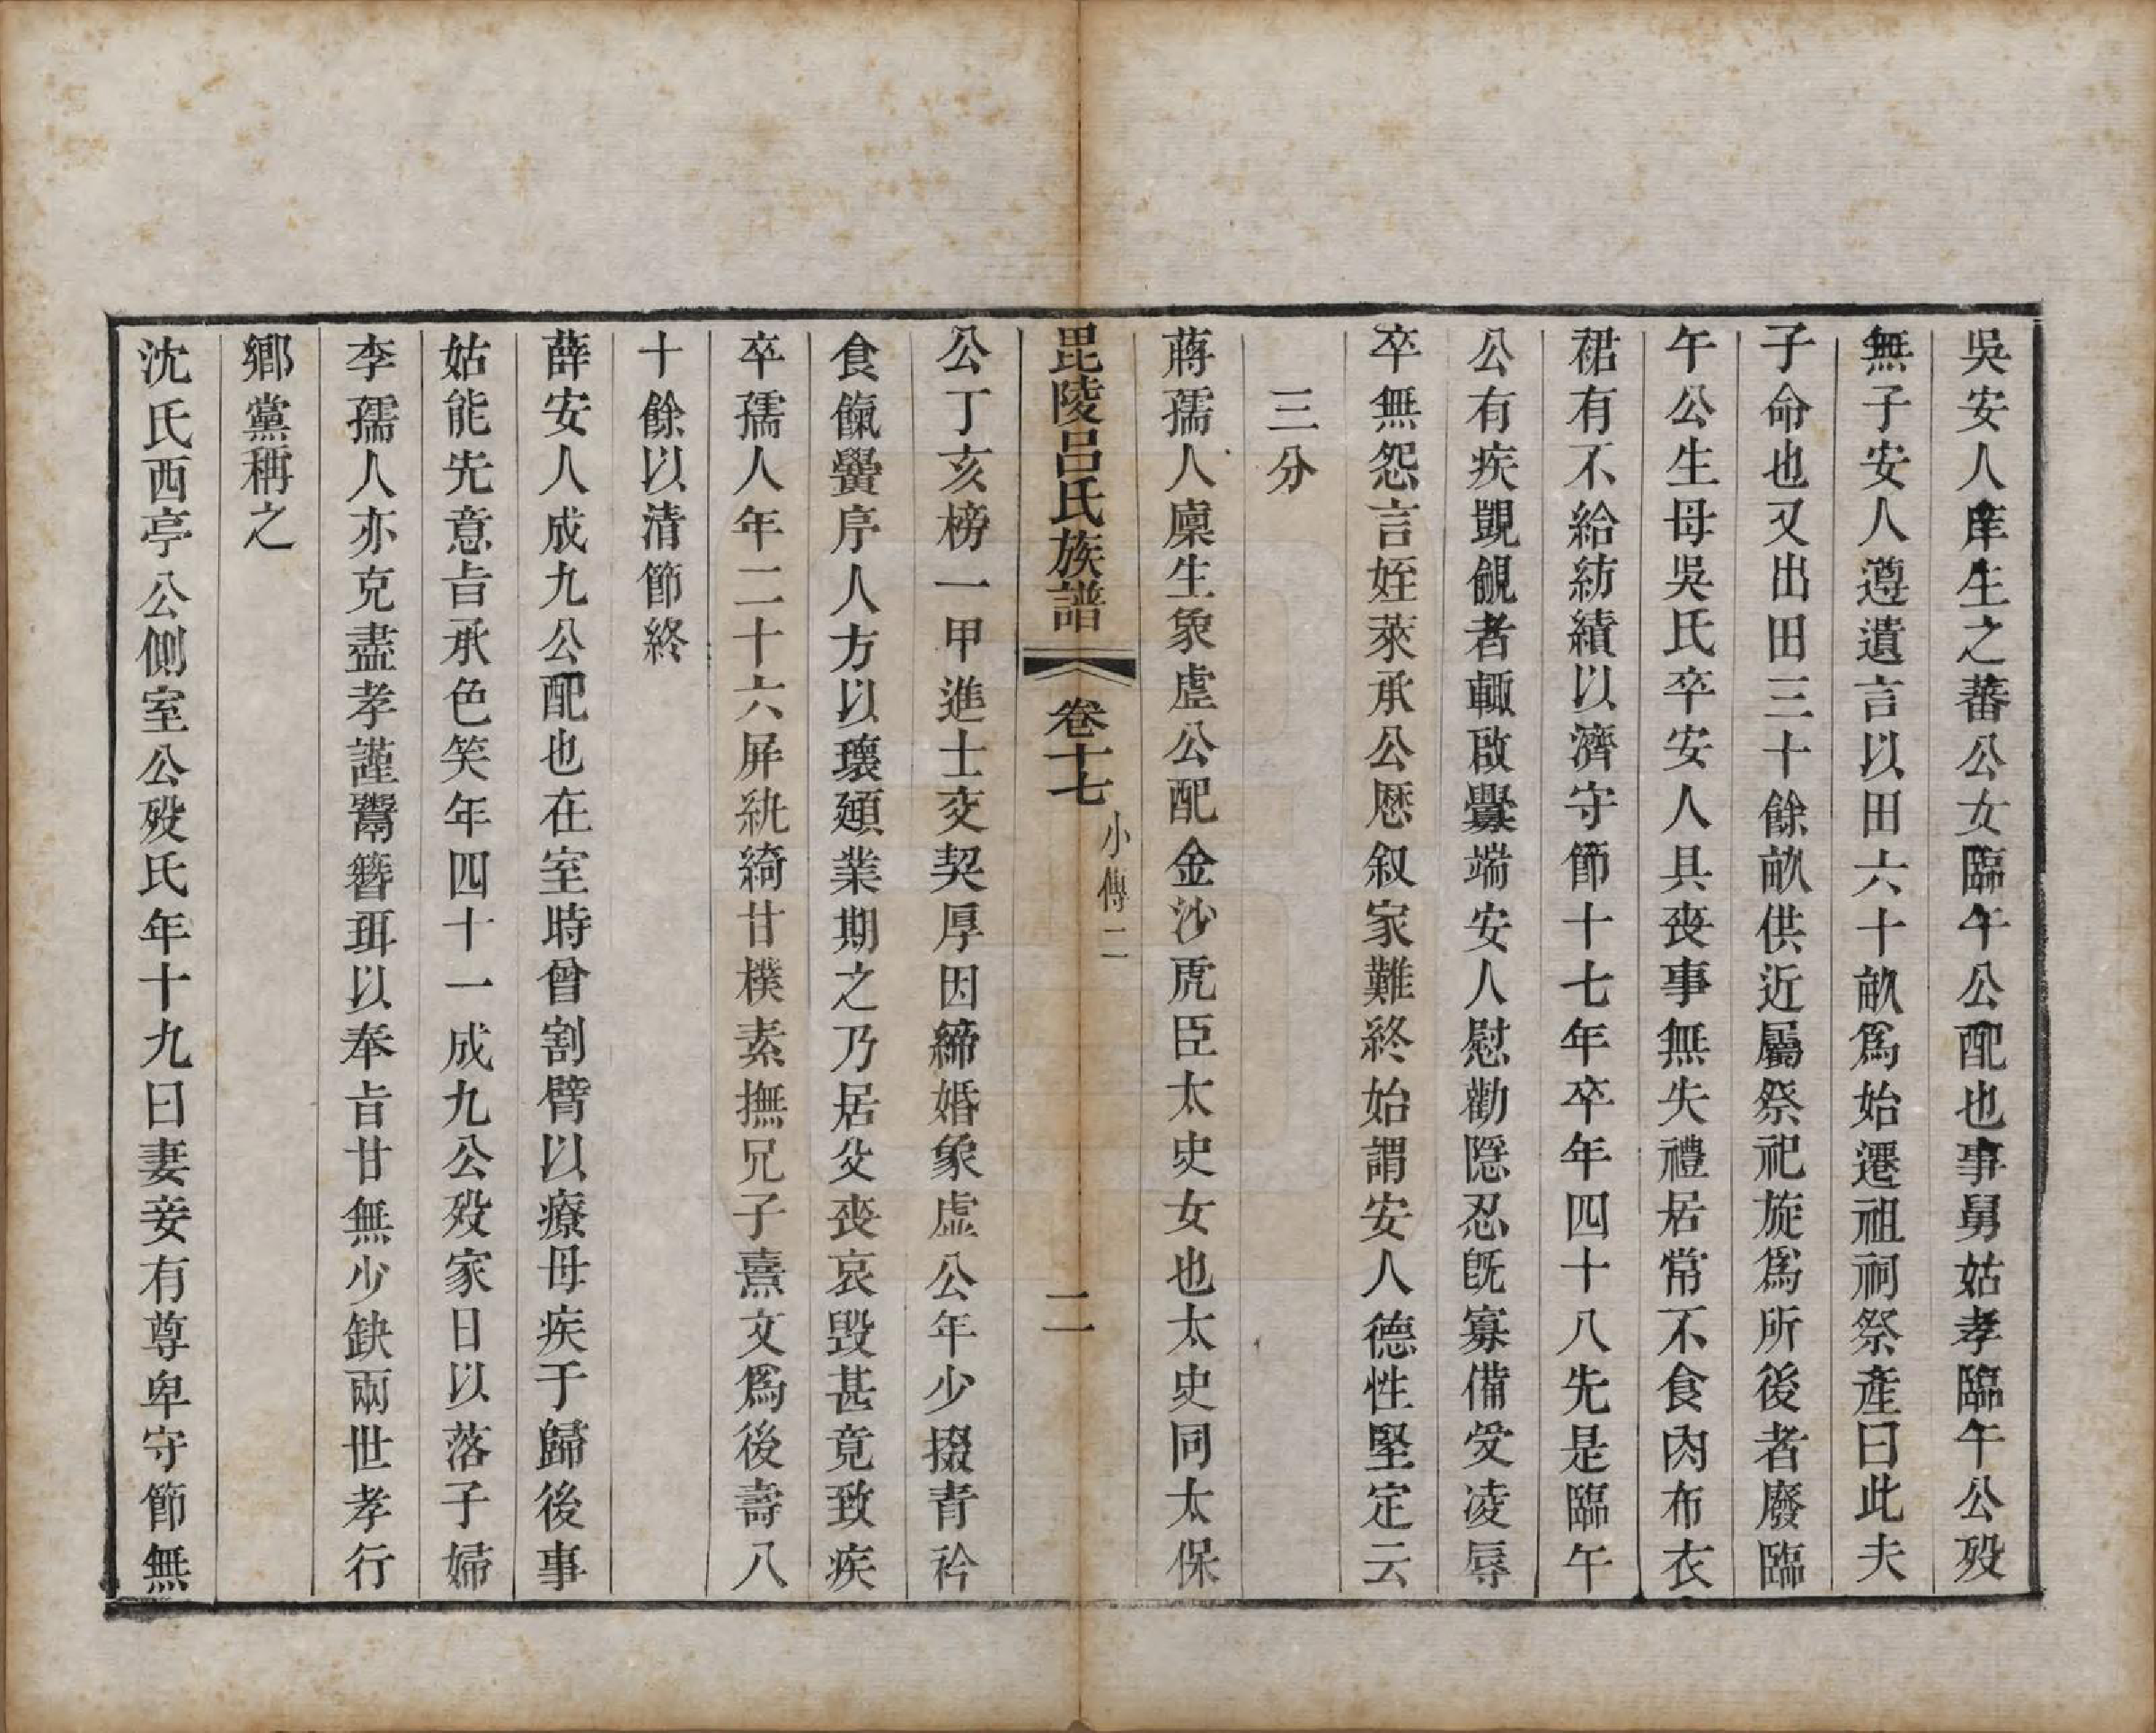 吳安人庠生之蕃公女臨午公配也事舅姑孝臨午公歿
無子安人遵遺言以田六十畝爲始遷祖祠祭產曰此夫
子命也又出田三十餘畝供近屬祭祀旋爲所後者廢臨
午公生母吳氏卒安人具喪事無失禮居常不食肉布衣
裙有不給紡績以濟守節十七年卒年四十八先是臨午
公有疾覬覦者輒啟釁端安人慰勸隱忍旣寡備受凌辱
卒無怨言姪萊承公歷叙家難終始謂安人德性堅定云
三分
蔣孺人廩生象虛公配金沙虎臣太史女也太史同太保
毘陵呂氏族譜
卷十七
小傳二
二
公丁亥榜一甲進士交契厚因締婚象虛公年少掇青衿
食餼黌序人方以瓌頲業期之乃居父喪哀毀甚竟致疾
卒孺人年二十六屏紈綺甘樸素撫兄子熹文爲後壽八
十餘以清節終
薛安人成九公配也在室時曾割臂以療母疾于歸後事
姑能先意旨承色笑年四十一成九公歿家日以落子婦
李孺人亦克盡孝謹鬻簪珥以奉旨甘無少缺兩世孝行
鄉黨稱之
沈氏西亭公側室公歿氏年十九曰妻妾有尊卑守節無